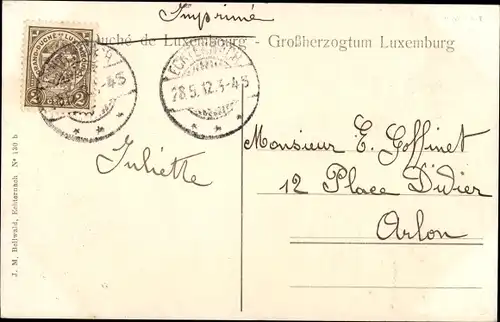 Imprimé
Duché de Luxembourg - Großherzogtum Luxemburg
GRAND-DUCHÉ DE LUXEMBOURG
2 2
ECHTERNACH
28.5.12.3-4S
Juliette
Monsieur E. Goffinet
12 Place Didier
Arlon
J. M. Bellwald, Echternach. No 130 b